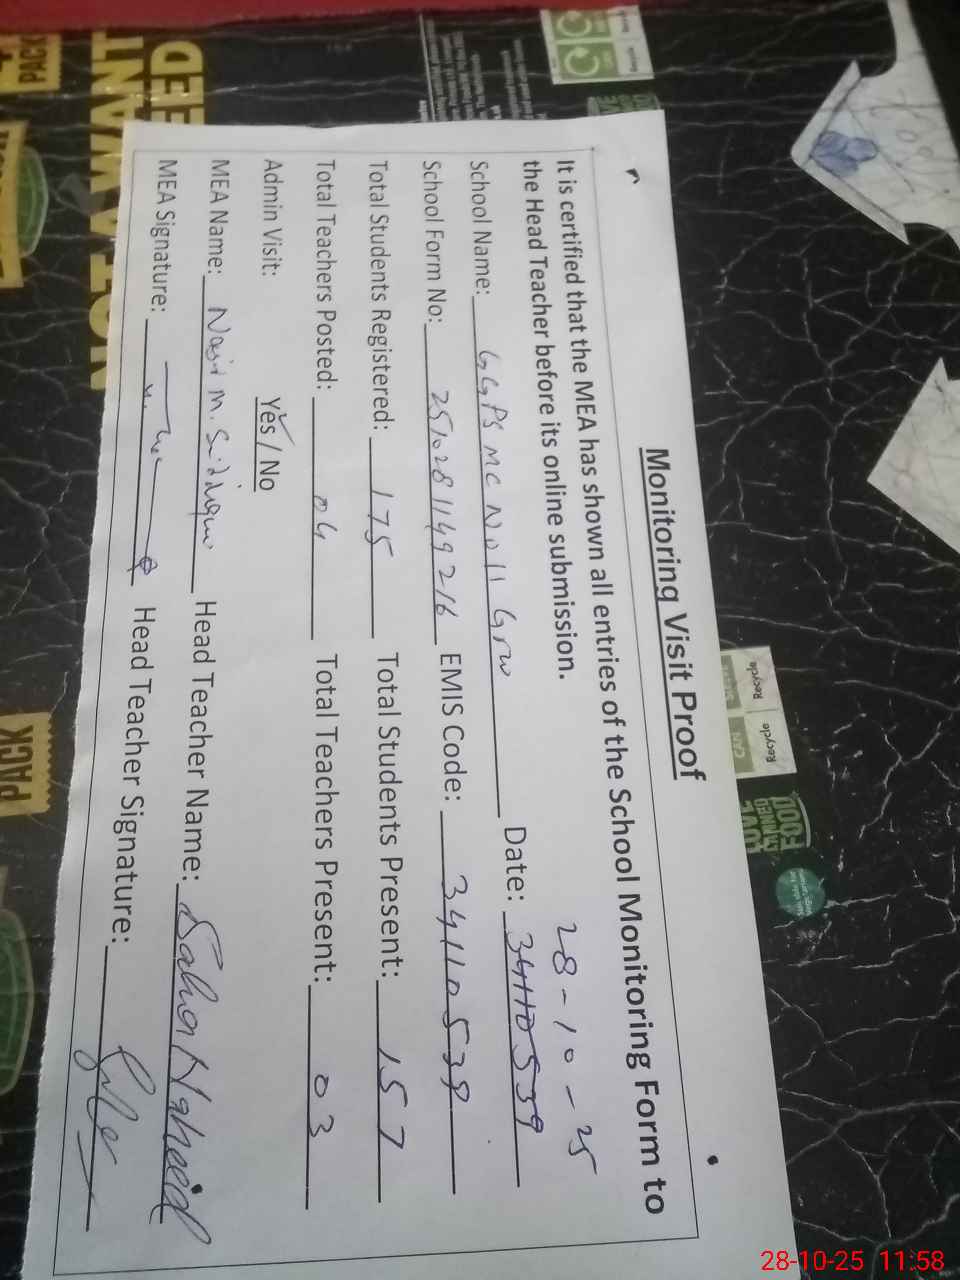 Monitoring Visit Proof
It is certified that the MEA has shown all entries of the School Monitoring Form to
the Head Teacher before its online submission.
28-10-25
School Name: GGPS MC No 11 Grw Date: 34110539
School Form No: 2510281149216 EMIS Code: 34110539
Total Students Registered: 175 Total Students Present: 157
Total Teachers Posted: 04 Total Teachers Present: 03
Admin Visit: Yes / No
MEA Name: M. Head Teacher Name: Naheed
MEA Signature: Head Teacher Signature:
Recycle
Recycle
PACK
PACK
28-10-25 11:58